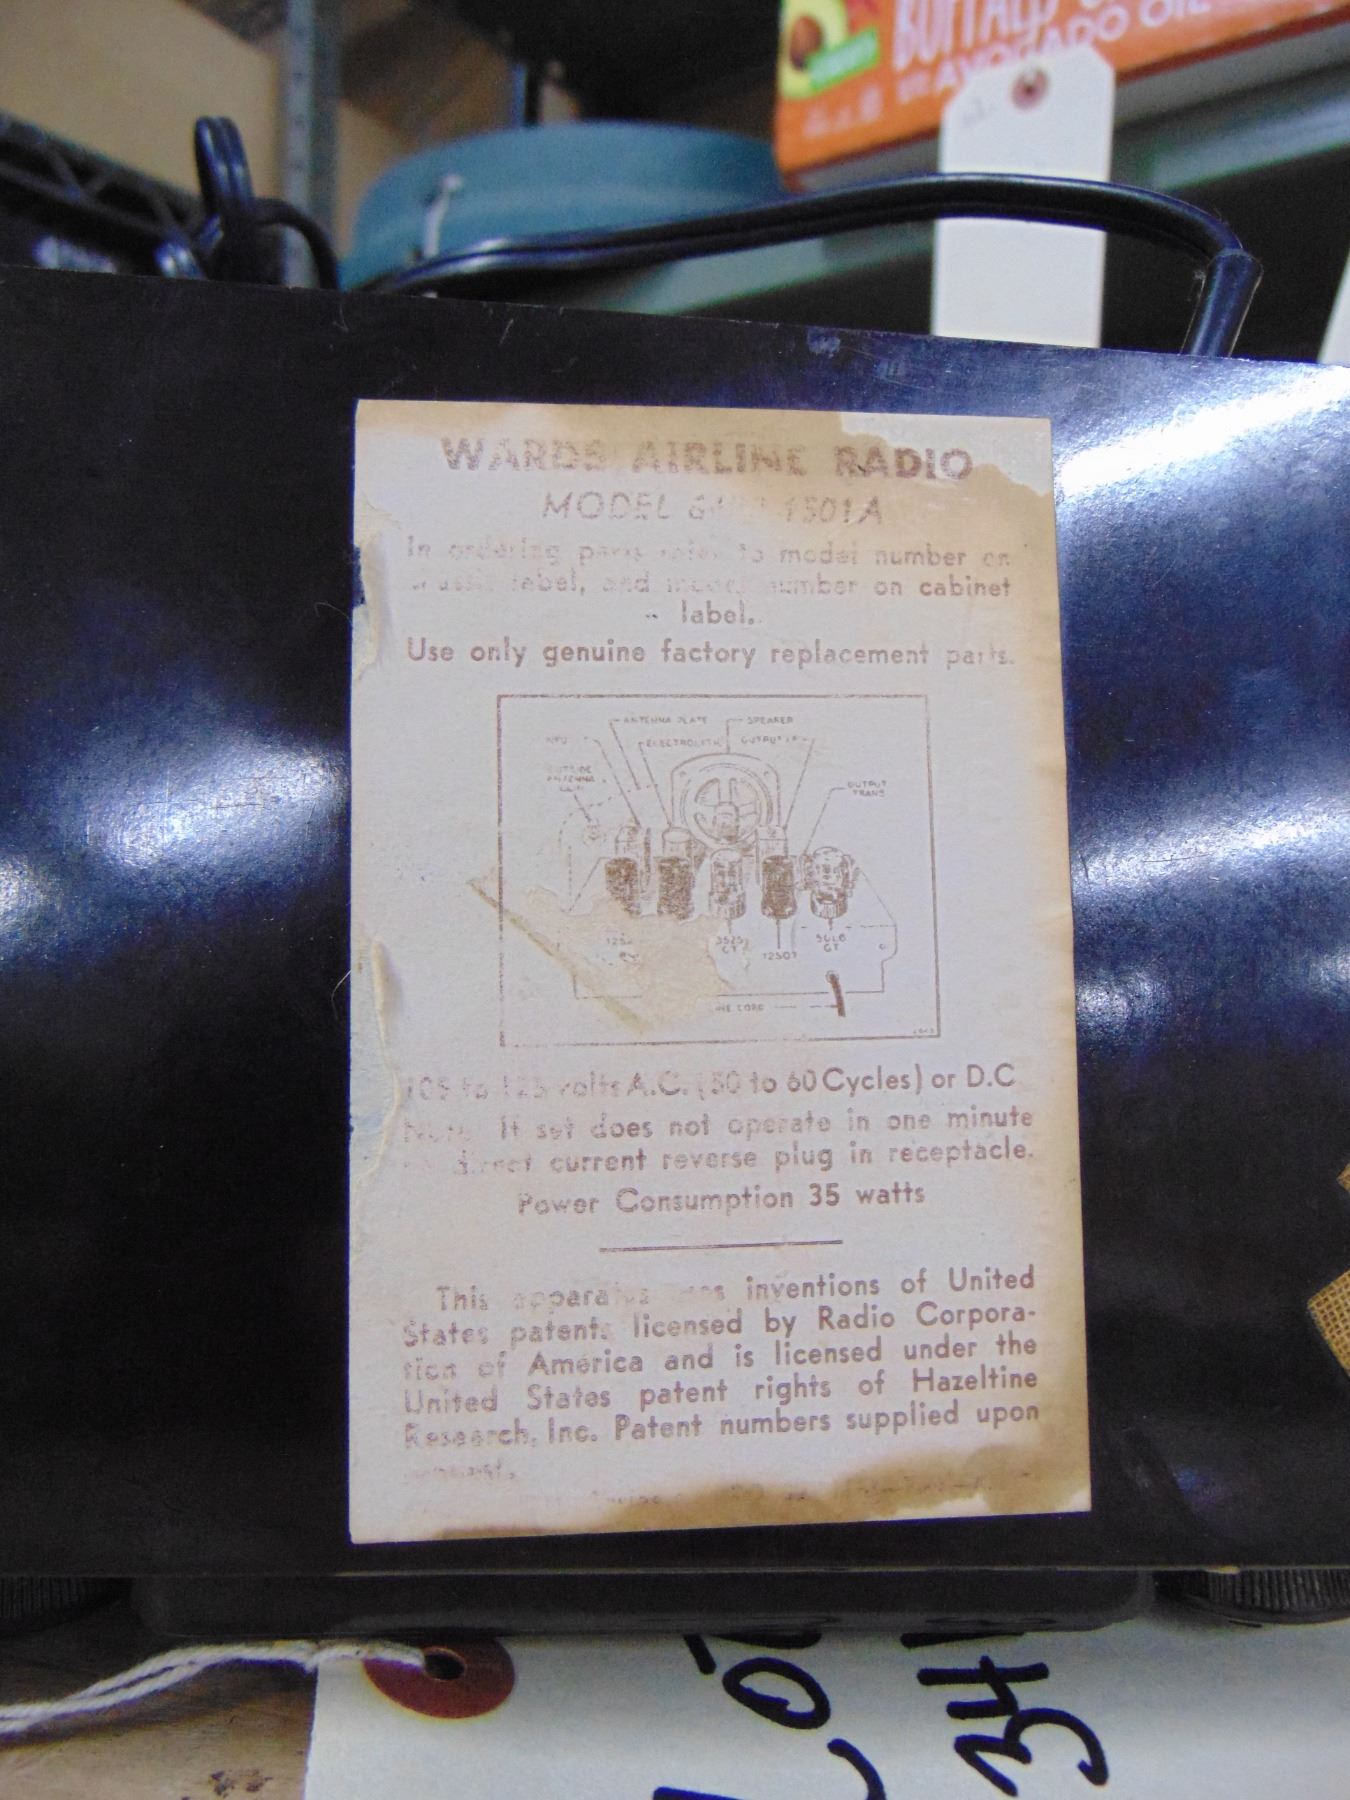 BUFFALO
AVOCADO OIL
WARDS AIRLINE RADIO
MODEL 1501A
In ordering parts refer to model number on
label, and model number on cabinet
label.
Use only genuine factory replacement parts.
ANTENNA PLATE SPEAKER
ELECTROLYTIC OUTPUT I.F.
OUTSIDE
ANTENNA
OUTPUT
TRANS
35Z5
GT
12SQ7
50L6
GT
LINE CORD
105 to 125 volts A.C. (50 to 60 Cycles) or D.C.
Note: If set does not operate in one minute
on direct current reverse plug in receptacle.
Power Consumption 35 watts
This apparatus uses inventions of United
States patents licensed by Radio Corpora-
tion of America and is licensed under the
United States patent rights of Hazeltine
Research, Inc. Patent numbers supplied upon
request.